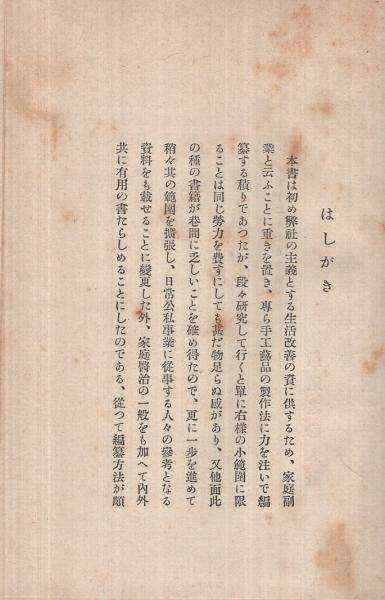 はしがき
本書は初め弊社の主義とする生活改善の資に供するため、家庭副
業と云ふことに重きを置き、專ら手工藝品の製作法に力を注いで編
纂する積りであつたが、段々研究して行くと單に右樣の小範圍に限
ることは同じ勞力を費すにしても甚だ物足らぬ感があり、又他面此
の種の書籍が巷間に乏しいことを確め得たので、更に一步を進めて
稍々其の範圍を擴張し、日常公私事業に從事する人々の參考となる
資料をも載せることに變更した外、家庭醫治の一般をも加へて內外
共に有用の書たらしめることにしたのである、從つて編纂方法が頗